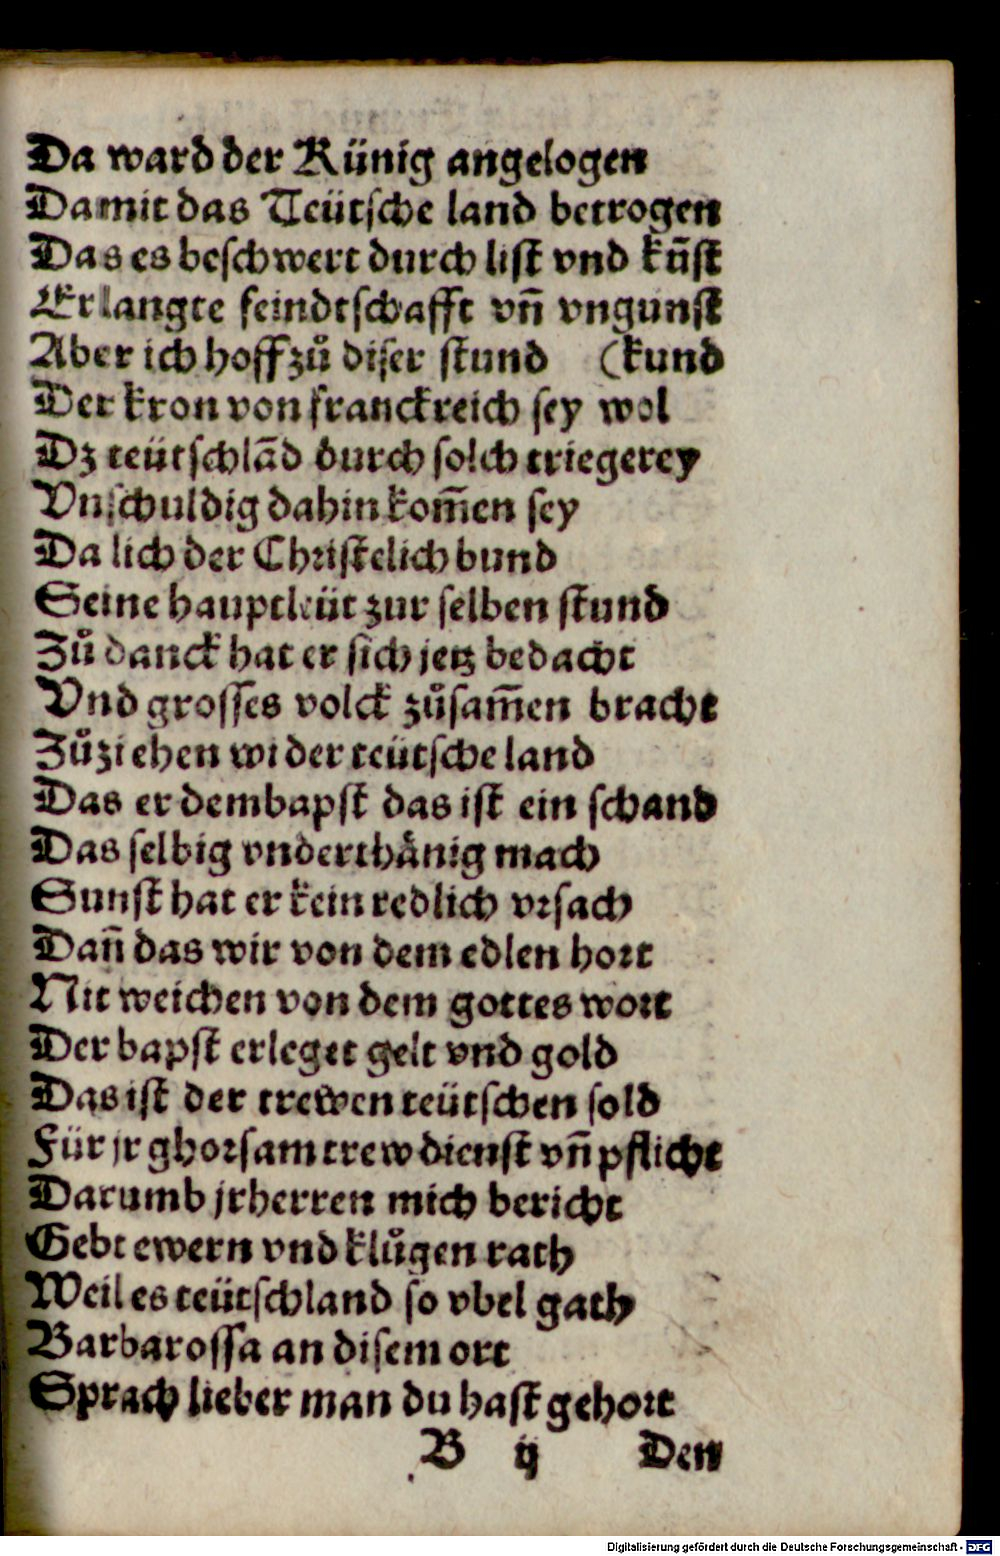 Da ward der Künig angelogen
Damit das Teütsche land betrogen
Das es beschwert durch list vnd kūst
Erlangte feindtschafft vñ vngunst
Aber ich hoff zů diser stund (kund
Der kron von franckreich sey wol
Dz teütschlād durch solch triegerey
Vnschuldig dahin kom̄en sey
Da lich der Christelich bund
Seine hauptleüt zur selben stund
Zů danck hat er sich jetz bedacht
Vnd grosses volck zůsam̄en bracht
Zůziehen wider teütsche land
Das er dem bapst das ist ein schand
Das selbig vnderthånig mach
Sunst hat er kein redlich vrsach
Dañ das wir von dem edlen hort
Nit weichen von dem gottes wort
Der bapst erleget gelt vnd gold
Das ist der trewen teütschen sold
Für jr ghorsam trew dienst vñ pflicht
Darumb jr herren mich bericht
Gebt ewern vnd klůgen rath
Weil es teütschland so vbel gath
Barbarossa an disem ort
Sprach lieber man du hast gehort
B ij Den
Digitalisierung gefördert durch die Deutsche Forschungsgemeinschaft - DFG